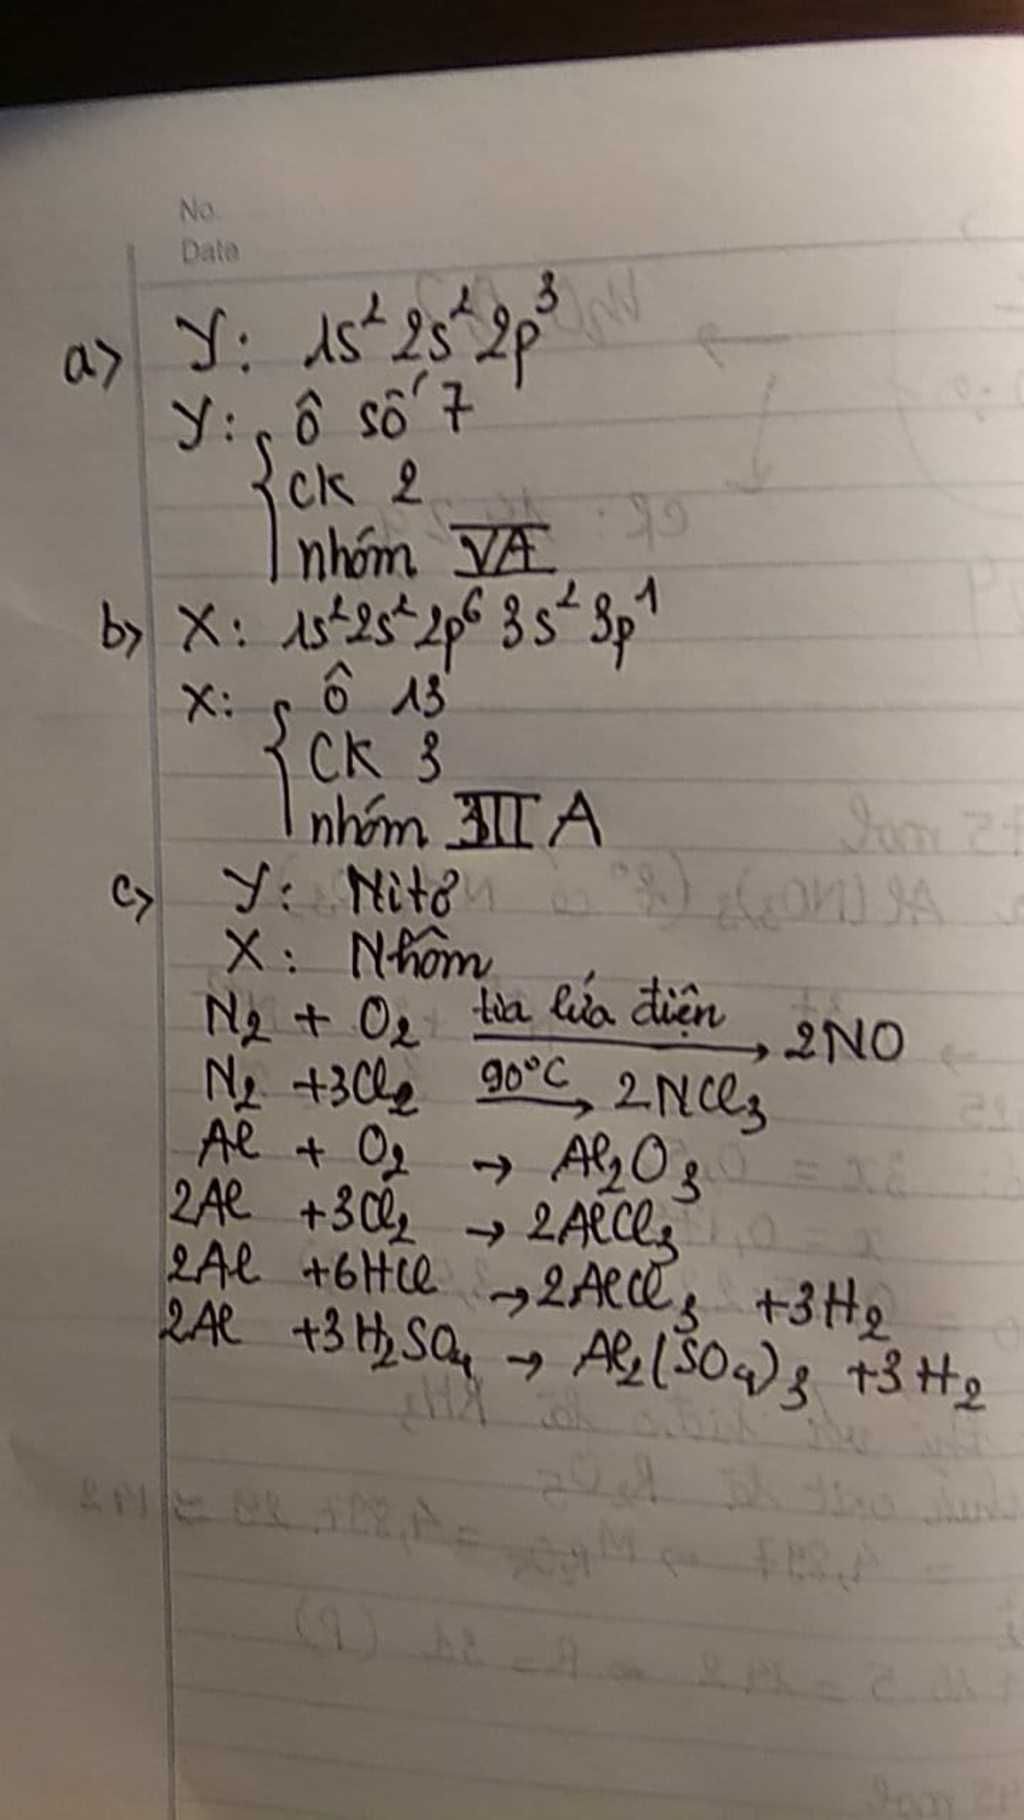 No.
Date
a> Y: 1s² 2s² 2p³
Y: { ô số 7
CK 2
nhóm VA
b> X: 1s² 2s² 2p⁶ 3s² 3p¹
X: { ô 13
CK 3
nhóm III A
c> Y: Nitơ
X: Nhôm
N₂ + O₂ tia lửa điện → 2NO
N₂ + 3Cl₂ 90°C → 2NCl₃
Al + O₂ → Al₂O₃
2Al + 3Cl₂ → 2AlCl₃
2Al + 6HCl → 2AlCl₃ + 3H₂
2Al + 3H₂SO₄ → Al₂(SO₄)₃ + 3H₂